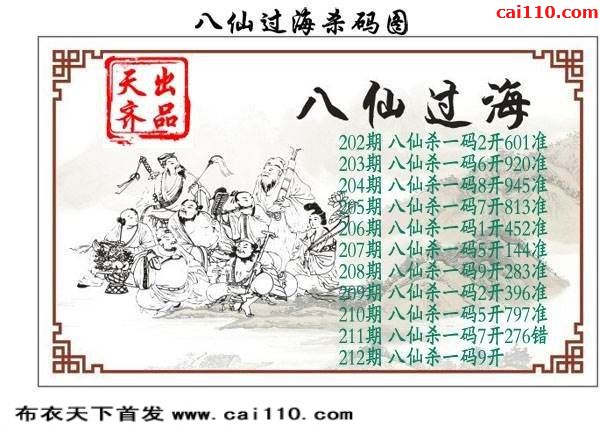 八仙过海杀码图
cai110.com
天齐
出品
八仙过海
202期 八仙杀一码2开601准
203期 八仙杀一码6开920准
204期 八仙杀一码8开945准
205期 八仙杀一码7开813准
206期 八仙杀一码1开452准
207期 八仙杀一码5开144准
208期 八仙杀一码9开283准
209期 八仙杀一码2开396准
210期 八仙杀一码5开797准
211期 八仙杀一码7开276错
212期 八仙杀一码9开
布衣天下首发 www.cai110.com